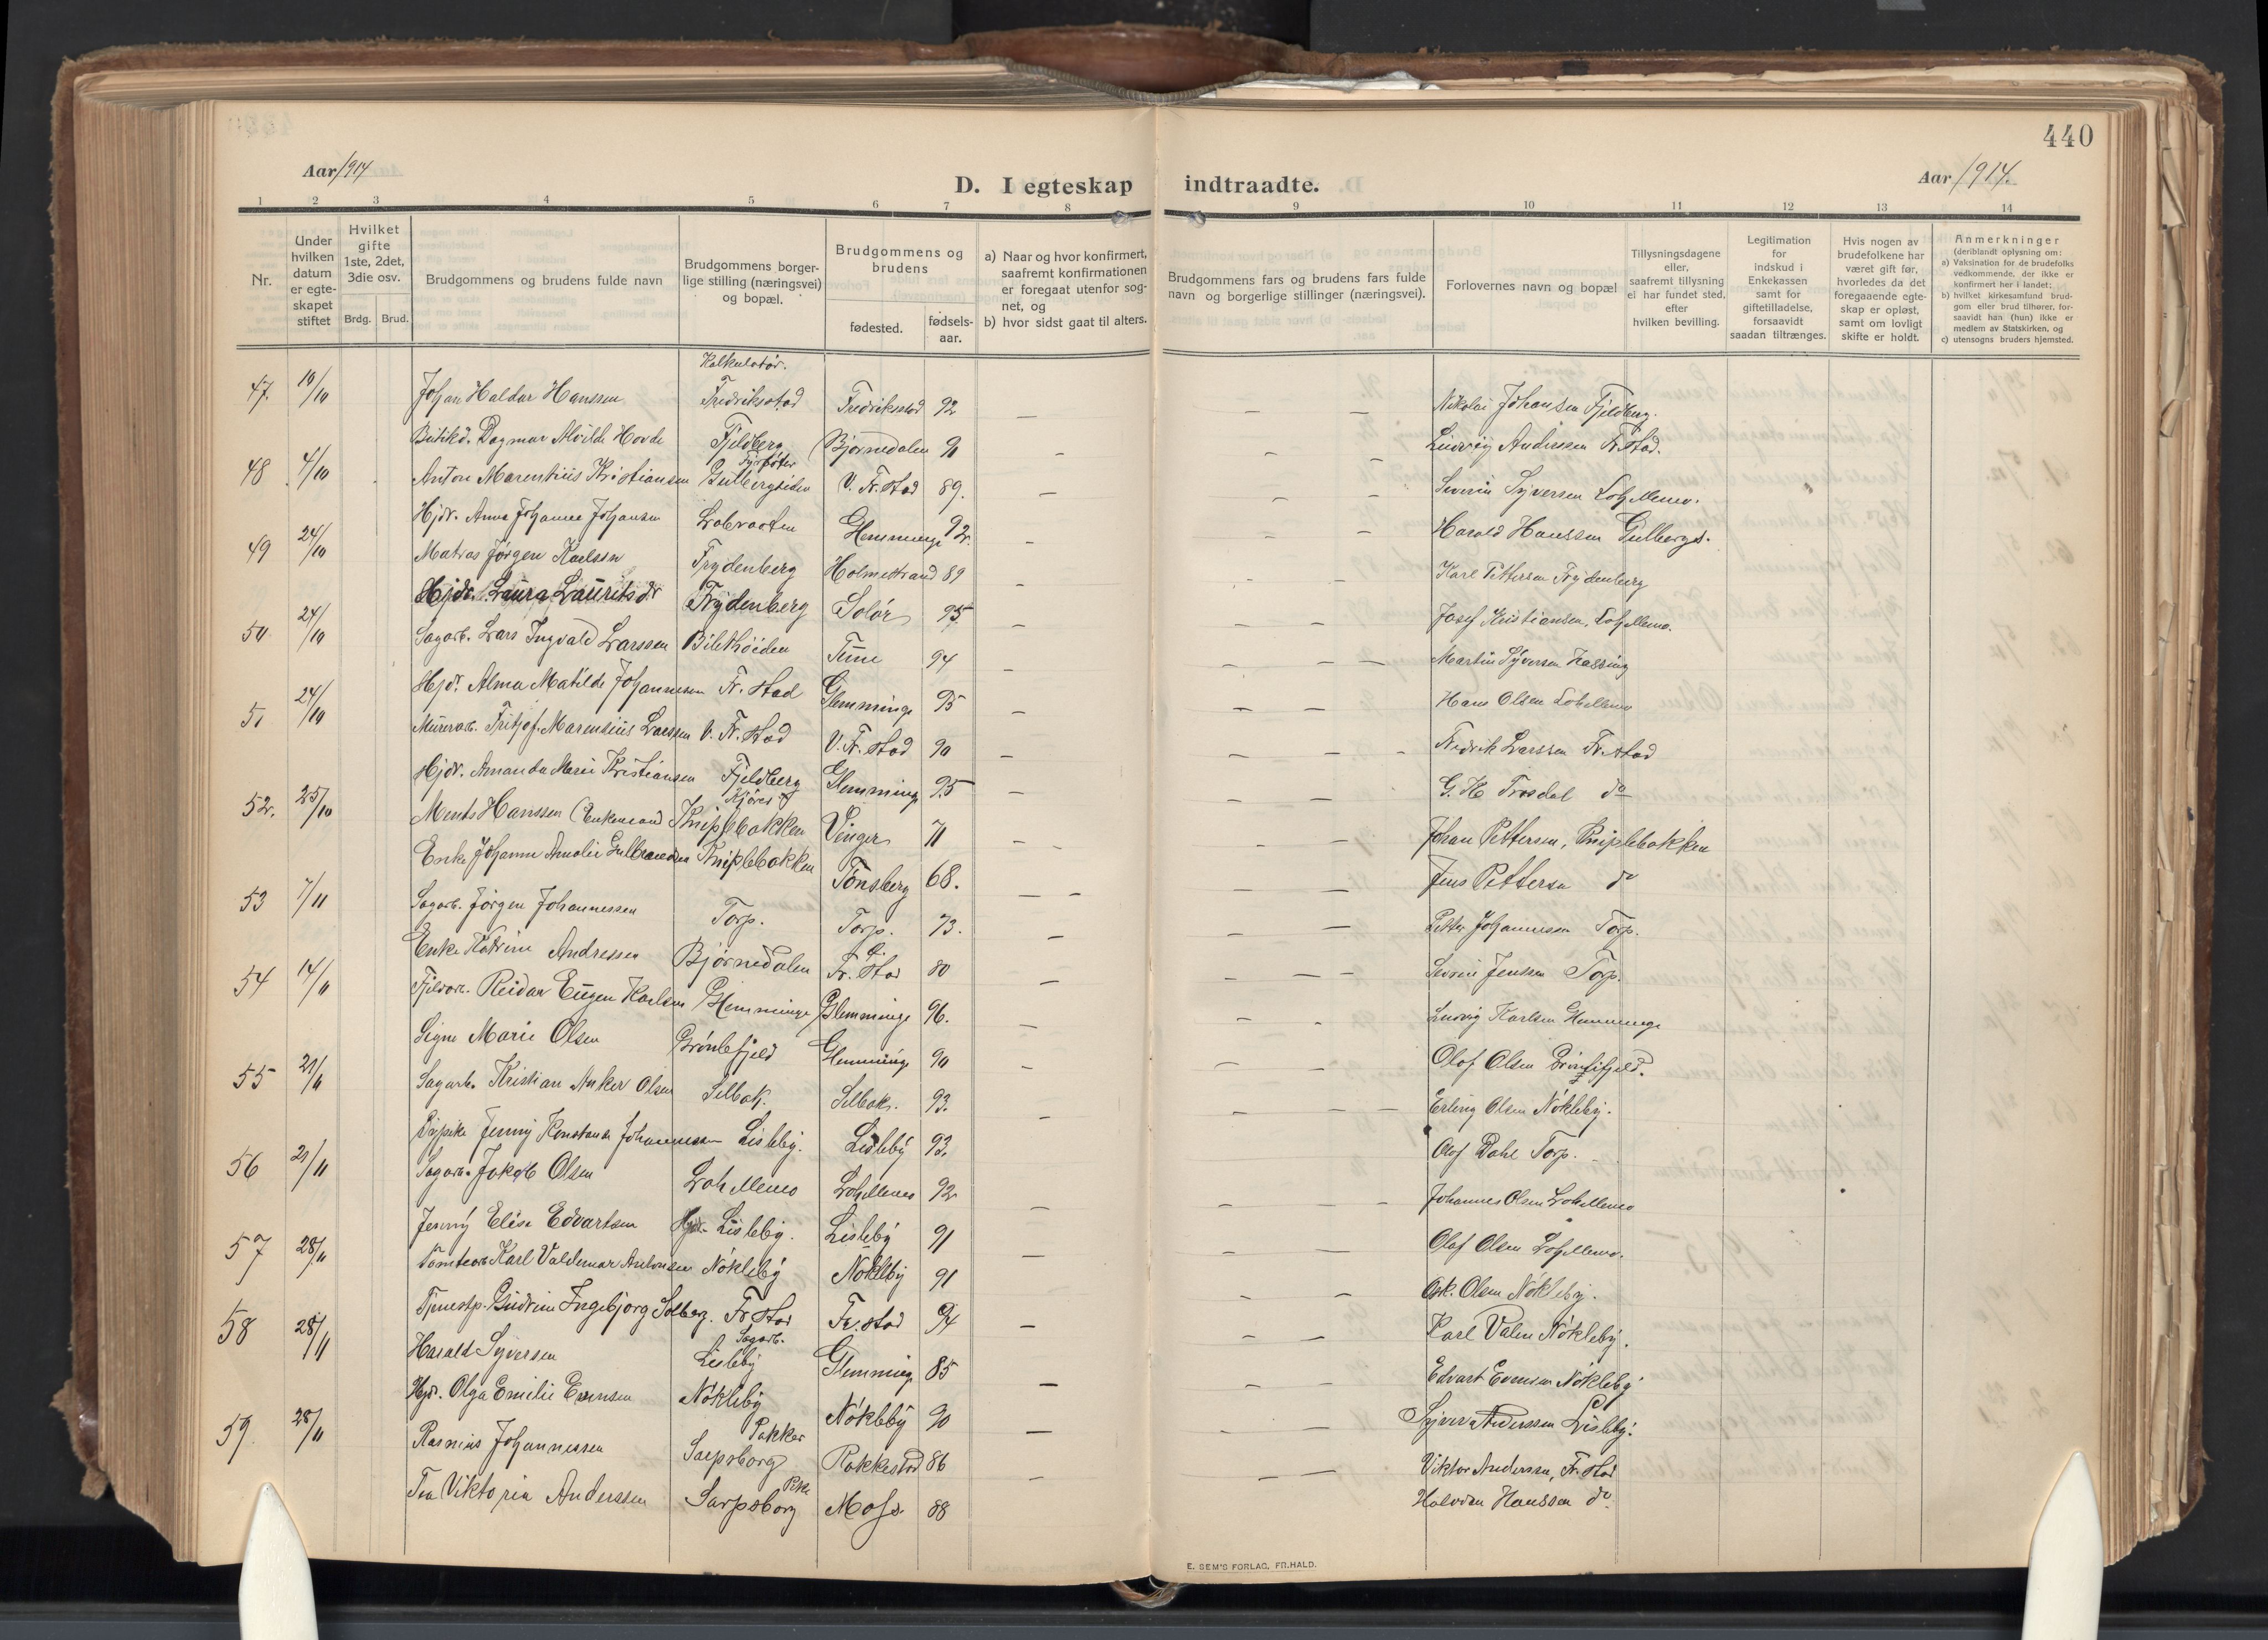 440
Aar 1914
Aar 1914.
D. I egteskap indtraadte.
1 2 3 4 5 6 7 8 9 10 11 12 13 14
Nr.
Under hvilken datum er egteskapet stiftet
Hvilket gifte 1ste, 2det, 3die osv.
Brdg. Brud.
Brudgommens og brudens fulde navn
Brudgommens borgerlige stilling (næringsvei) og bopæl.
Brudgommens og brudens
fødested. fødselsaar.
a) Naar og hvor konfirmert, saafremt konfirmationen er foregaat utenfor sognet, og
b) hvor sidst gaat til alters.
Brudgommens fars og brudens fars fulde navn og borgerlige stillinger (næringsvei).
Forlovernes navn og bopæl
Tillysningsdagene eller, saafremt tillysning ei har fundet sted, efter hvilken bevilling.
Legitimation for indskud i Enkekassen samt for giftetilladelse, forsaavidt saadan tiltrænges.
Hvis nogen av brudefolkene har været gift før, hvorledes da det foregaaende egteskap er opløst, samt om lovligt skifte er holdt.
Anmerkninger (deriblandt oplysning om:
a) Vaksination for de brudefolks vedkommende, der ikke er konfirmert her i landet;
b) hvilket kirkesamfund brudgom eller brud tilhører, forsaavidt han (hun) ikke er medlem av Statskirken, og
c) utensogns bruders hjemsted.
Kalkulatør.
47. 10/10 Johan Haldor Hanssen Fredriksstad Fredriksstad 92 Nikolai Johansen Fjeldberg.
Dagmar Alvilde Hovde Fjeldberg Bjørnedalen 91 Ludvig Anderssen Fr.stad.
Fyrbøter
48 4/10 Anton Marentius Kristiansen Gulbergsiden V. Fr. stad 89. Severin Syversen Lahellemo.
Hjdr. Anna Johanne Johansen Glemminge 92. Harald Hanssen Gulbergs.
49 24/10 Matros Jørgen Karlsen Frydenberg Holmestrand 89 Karl Pettersen Frydenberg
Hjdr. Laura Lauritsdr Frydenberg Solør 95. Josef Kristiansen, Lahellemo.
50 24/10 Sagarb. Lars Ingvald Larssen Time 94 Martin Syversen
Hjdr. Alma Matilde Johannesen Fr. stad Glemminge 95 Hans Olsen Lahellemo
51 24/10 Murerarb. Fritjof Marentius Larssen V. Fr. stad V. Fr. stad 90 Fredrik Larssen Fr. stad
Hjdr. Amanda Marie Kristiansen Fjeldberg Glemminge 95 G. H. Trosdal do
52. 25/10 Ments Hanssen (Enkemand Kniplebakken Vinger 71 Johan Pettersen, Kniplebakken
Enke Johanne Amalie Gulbrandsen Kniplebakken Tønsberg 68. Jens Petterse do
53 7/11 Sagarb. Jørgen Johannessen Torp. Torp. 73. Petter Johannessen Torp.
Enke Katrine Andressen Bjørnedalen Fr. stad 80 Severin Jenssen Torp.
54 14/11 Reidar Eugen Karlsen Glemminge Glemminge 96. Ludvig Karlsen Glemminge
Signe Marie Olsen Brønlefjeld Glemminge 90 Olof Olsen
55 21/11 Sagarb. Kristian Anker Olsen Selbak. Selbak. 93. Erling Olsen Nøkleby.
Jenny Konstanse Johannessen Lisleby. Lisleby 93. Olof Dahl Torp.
56 21/11 Sagarb. Jakob Olsen Lahellemo Lahellemo 92 Johannes Olsen Lahellemo
Jenny Elise Edvartsen Hjdr. Lisleby. Lisleby 91 Olaf Olsen Lahellemo.
57 28/11 Tomtearb Karl Valdemar Antonsen Nøkleby Nøkleby 91 Osk. Olsen Nøkleby.
Tjenestp. Gudrun Ingebjorg Solberg. Fr. stad Fr. stad 94 Karl Nøkleby.
Sagarb.
58 28/11 Harald Syversen Lisleby Glemminge 85 Edvart Evensen Nøkleby
Hjdr. Olga Emilie Evensen Nøkleby Nøkleby 90 Syver Anderssen Lisleby.
Pakker
59. 28/11 Rasmus Johannessen Sarpsborg Rakkestad 86 Viktor Anderssen, Fr. stad
Tea Viktoria Anderssen Sarpsborg Moss. 88 Halvdan Hanssen do
E. SEM'S FORLAG, FR.HALD.